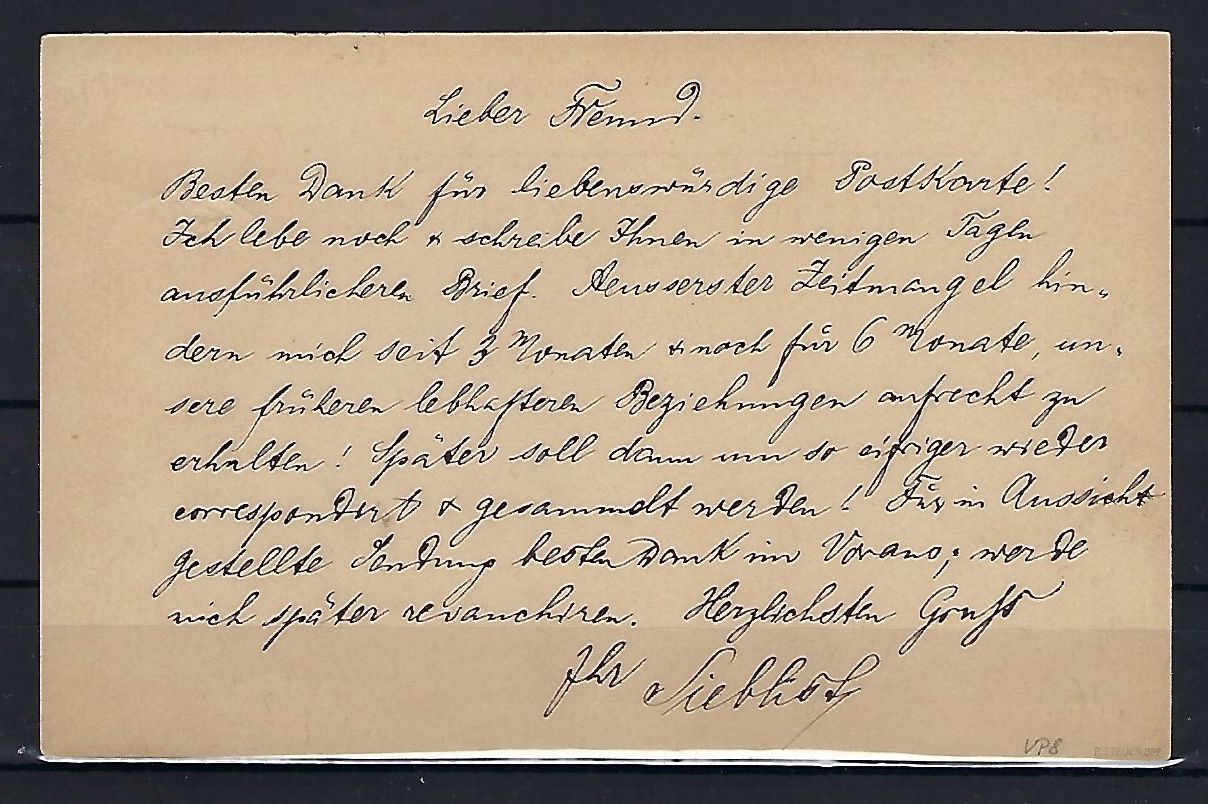 Lieber Freund.
Besten Dank für liebenswürdige Postkarte!
Ich lebe noch & schreibe Ihnen in wenigen Tagen
ausführlicheren Brief. Aeusserster Zeitmangel hin-
dern mich seit 3 Monaten & noch für 6 Monate, un-
sere früheren lebhafteren Beziehungen aufrecht zu
erhalten! Später soll dann um so eifriger wieder
correspondirt & gesammelt werden! Für in Aussicht
gestellte Sendung besten Dank im Voraus; werde
mich später revanchiren. Herzlichsten Gruss
Ihr
VP8
R.STEUER BPP